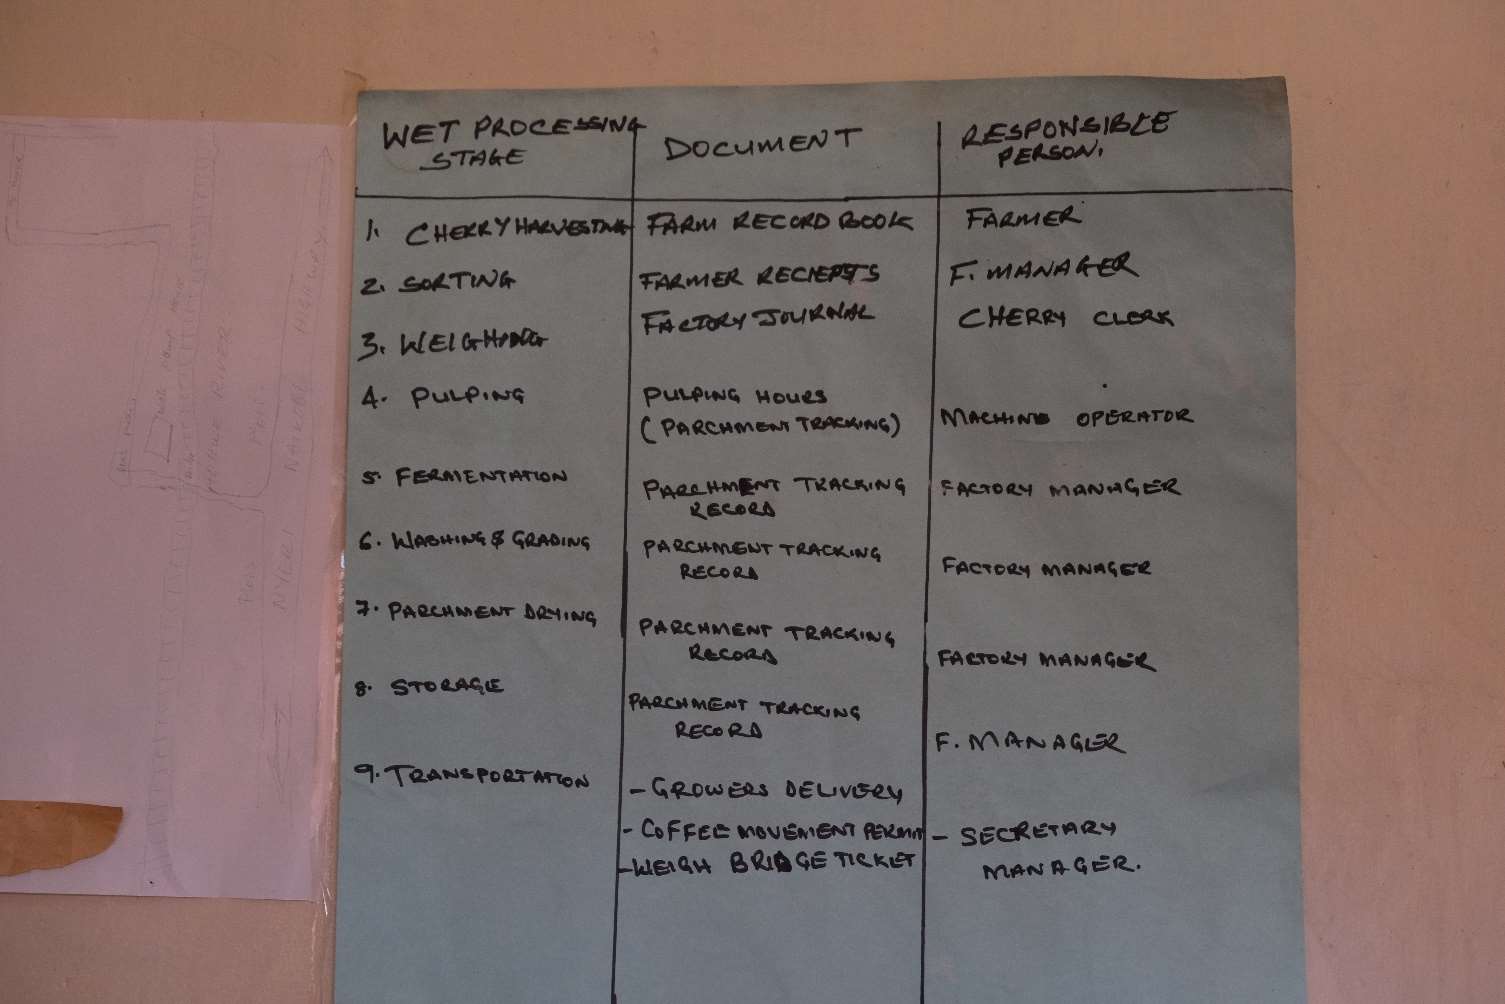 WET PROCESSING
STAGE
DOCUMENT
RESPONSIBLE
PERSON.
1. CHERRY HARVESTING
FARM RECORD BOOK
FARMER
2. SORTING
FARMER RECIEPTS
F. MANAGER
3. WEIGHING
FACTORY JOURNAL
CHERRY CLERK
4. PULPING
PULPING HOURS
(PARCHMENT TRACKING)
MACHINE OPERATOR
5. FERMENTATION
PARCHMENT TRACKING
RECORD
FACTORY MANAGER
6. WASHING & GRADING
PARCHMENT TRACKING
RECORD
FACTORY MANAGER
7. PARCHMENT DRYING
PARCHMENT TRACKING
RECORD
FACTORY MANAGER
8. STORAGE
PARCHMENT TRACKING
RECORD
F. MANAGER
9. TRANSPORTATION
- GROWERS DELIVERY
- COFFEE MOVEMENT PERMIT
- WEIGH BRIDGE TICKET
- SECRETARY
MANAGER.
RIVER
NYERI NAIROBI HIGHWAY